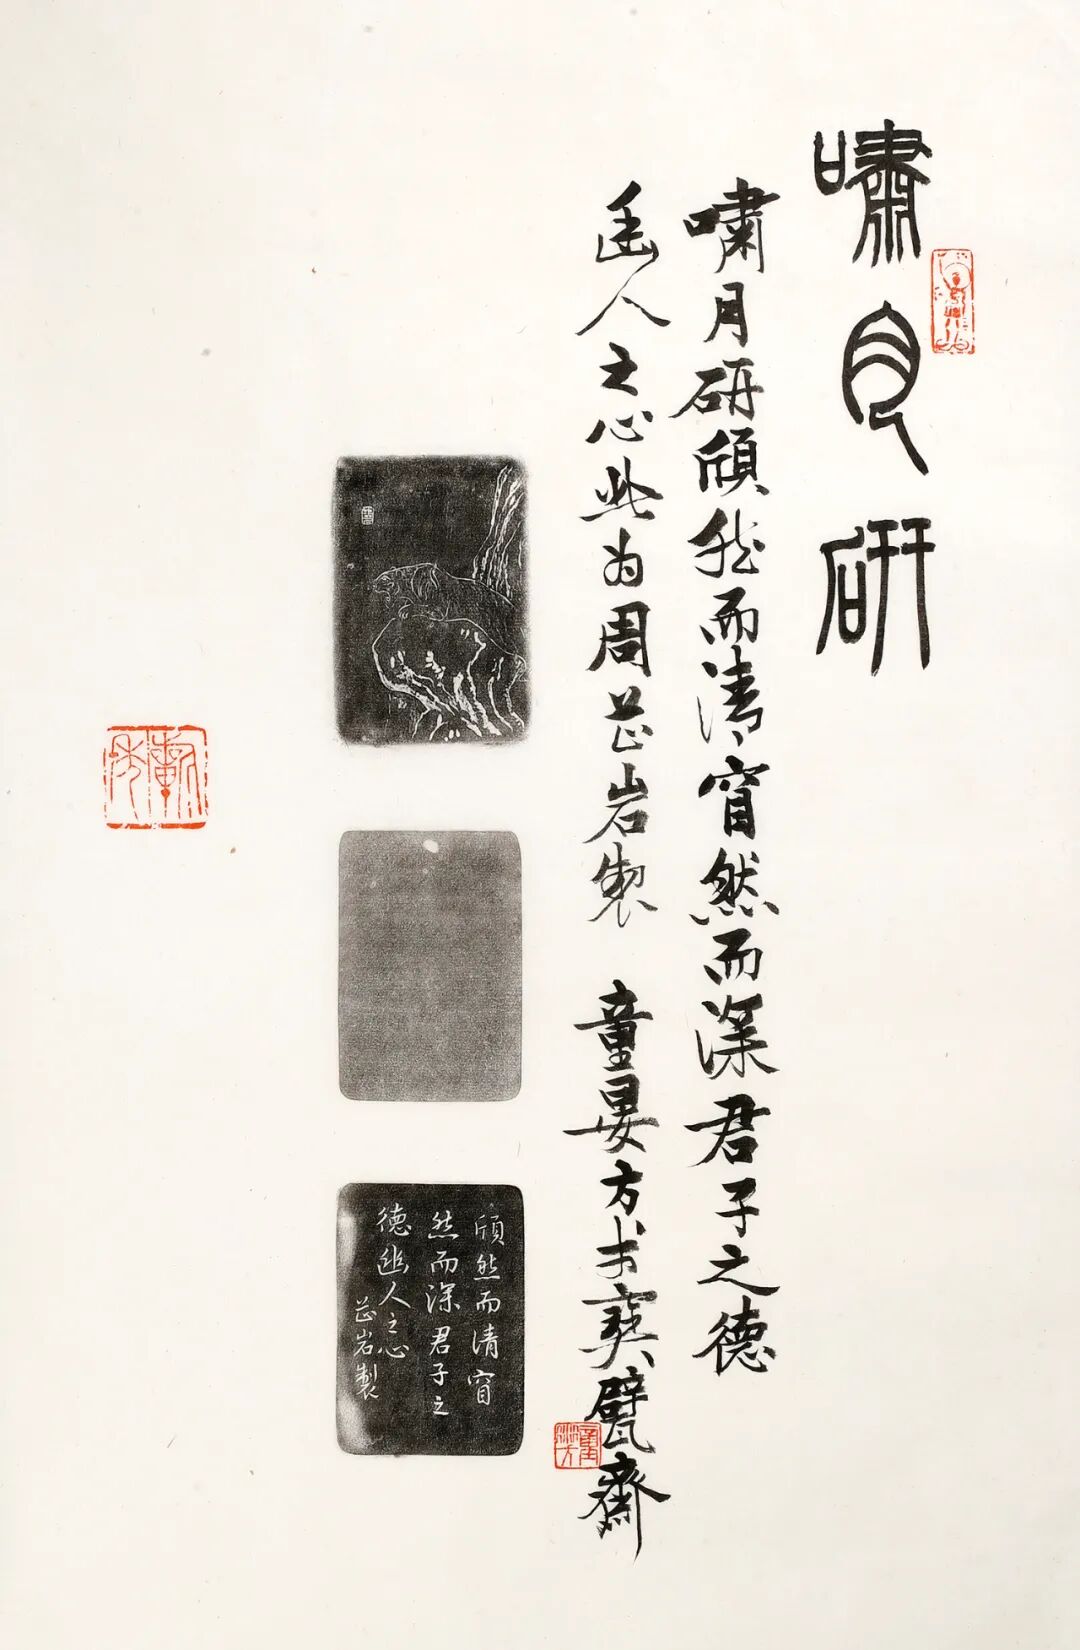 嘯月研
嘯月研頎然而清窅然而深君子之德
幽人之心此为周芷岩製 童晏方书寶甓齋
頎然而清窅
然而深君子之
德幽人之心
芷岩製